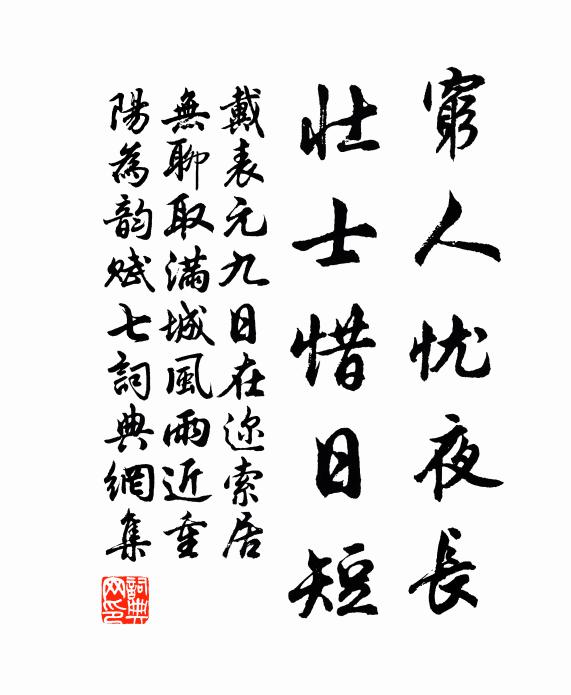 窮人忧夜長
壮士惜日短
戴表元九日在迩索居
無聊取滿城風雨近重
陽為韵賦七詞典網集
詞典
网印